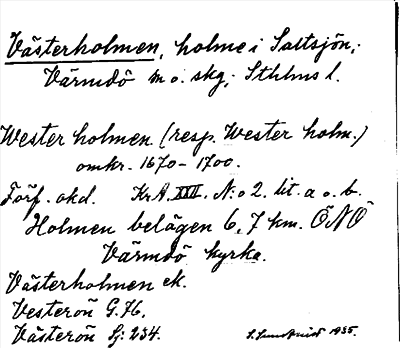 Västerholmen, holme i Saltsjön,
Värmdö m o. skg, Sthlms l.
Wester holmen (resp. Wester holm.)
omkr. 1670-1700.
Förf. okd. Kr.A. XXII. N:o 2. lit. a o. b.
Holmen belägen 6,7 km. ÖNÖ
Värmdö kyrka.
Västerholmen ek.
Vesterön G.76.
Västerön Sj: 234.
1935.